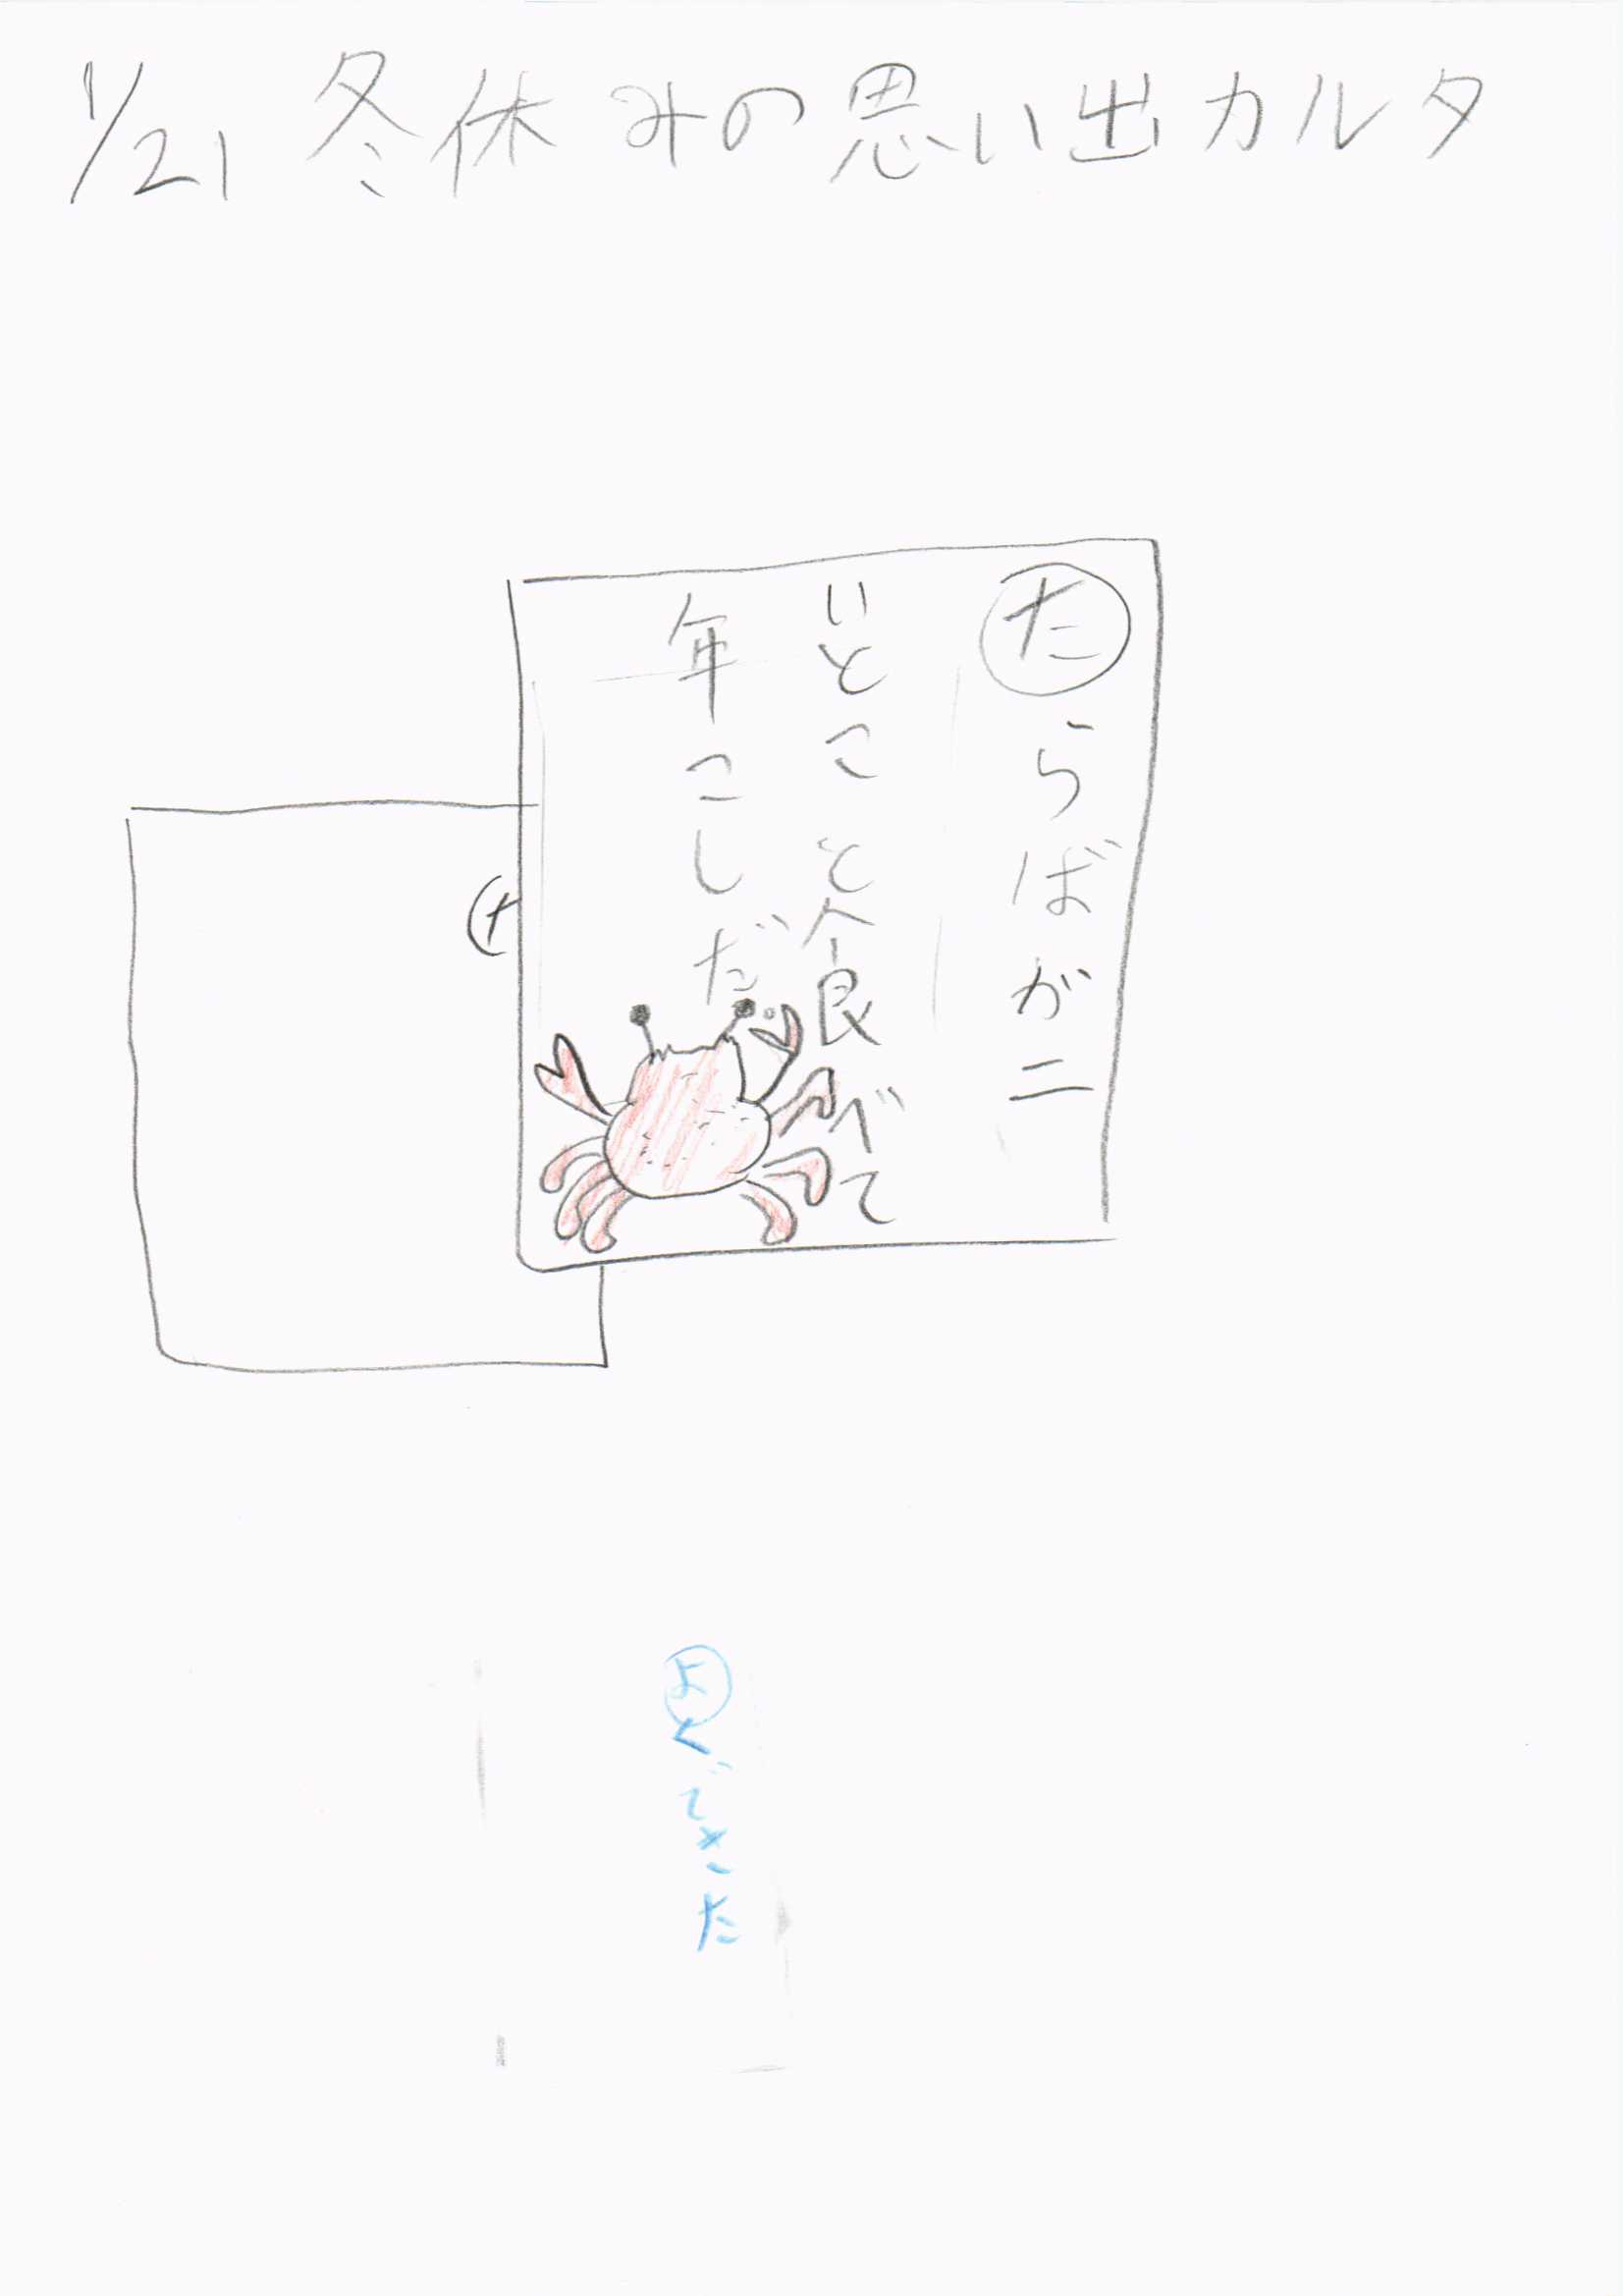 1/21 冬休みの思い出カルタ
たらばがニ
いとこと食べて
年こしだ
た
よくできた